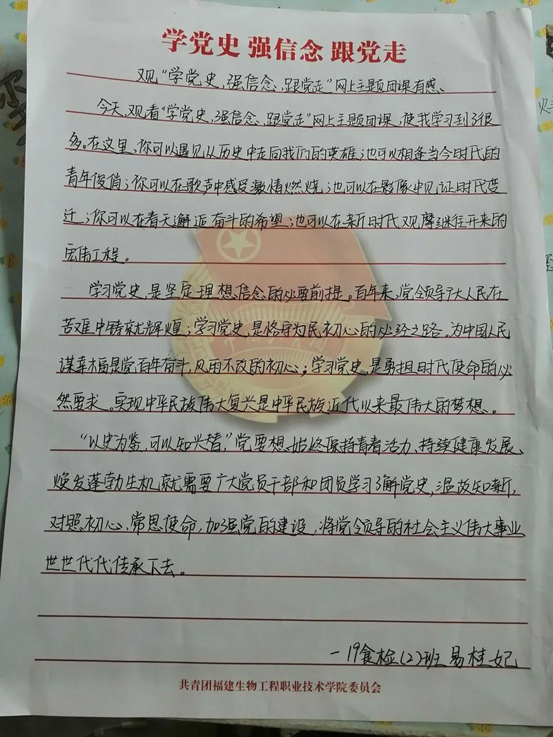 学党史 强信念 跟党走
观“学党史,强信念、跟党走”网上主题团课有感、
今天、观看“学党史,强信念、跟党走”网上主题团课,使我学习到了很
多。在这里、你可以遇见从历史中走向我们的英雄;也可以相逢当今时代的
青年俊俏;你可以在歌声中感受激情燃烧,也可以在影像中见证时代变
迁;你可以在春天邂逅奋斗的希望;也可以在新时代观摩继往开来的
宏伟工程。
学习党史,是坚定理想信念的必要前提。百年来,党领导广大人民在
苦难中铸就辉煌;学习党史,是恪守为民初心的必经之路,为中国人民
谋幸福是党百年奋斗,风雨不改的初心;学习党史,是勇担时代使命的必
然要求。实现中华民族伟大复兴是中华民族近代以来最伟大的梦想、。
“以史为鉴,可以知兴替”党要想始终保持青春活力、持续健康发展、
焕发蓬勃生机,就需要广大党员干部和团员学习了解党史,温故知新,
对照初心、常思使命,加强党的建设,将党领导的社会主义伟大事业
世世代代传承下去。
—19食检(2)班 易桂妃
共青团福建生物工程职业技术学院委员会